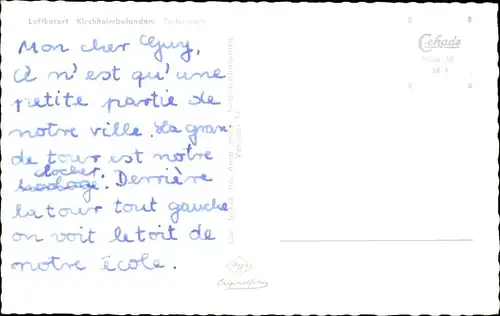 Luftkurort Kirchheimbolanden.
Mon cher Guy,
Ce n'est qu'une
petite partie de
notre ville. La gran
de tour est notre
clocher. Derrière
la tour tout gauche
on voit le toit de
notre école.
Cekade
Agfa
Originalfoto